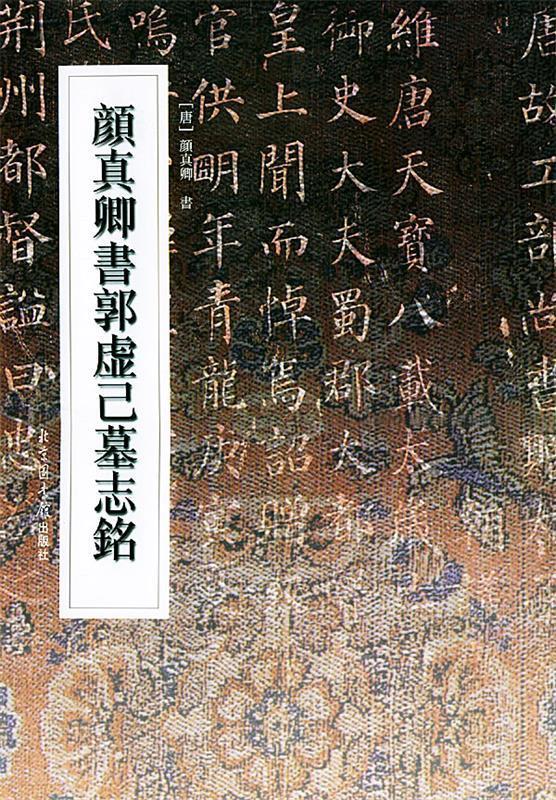 唐故工部尚書贈
維唐天寶八載太
御史大夫蜀郡大都
皇上聞而悼焉詔
官供明年青龍庚
嗚
氏
荆州都督謚曰忠
[唐] 顔真卿 書
顔真卿書郭虚己墓志銘
北京图书馆出版社